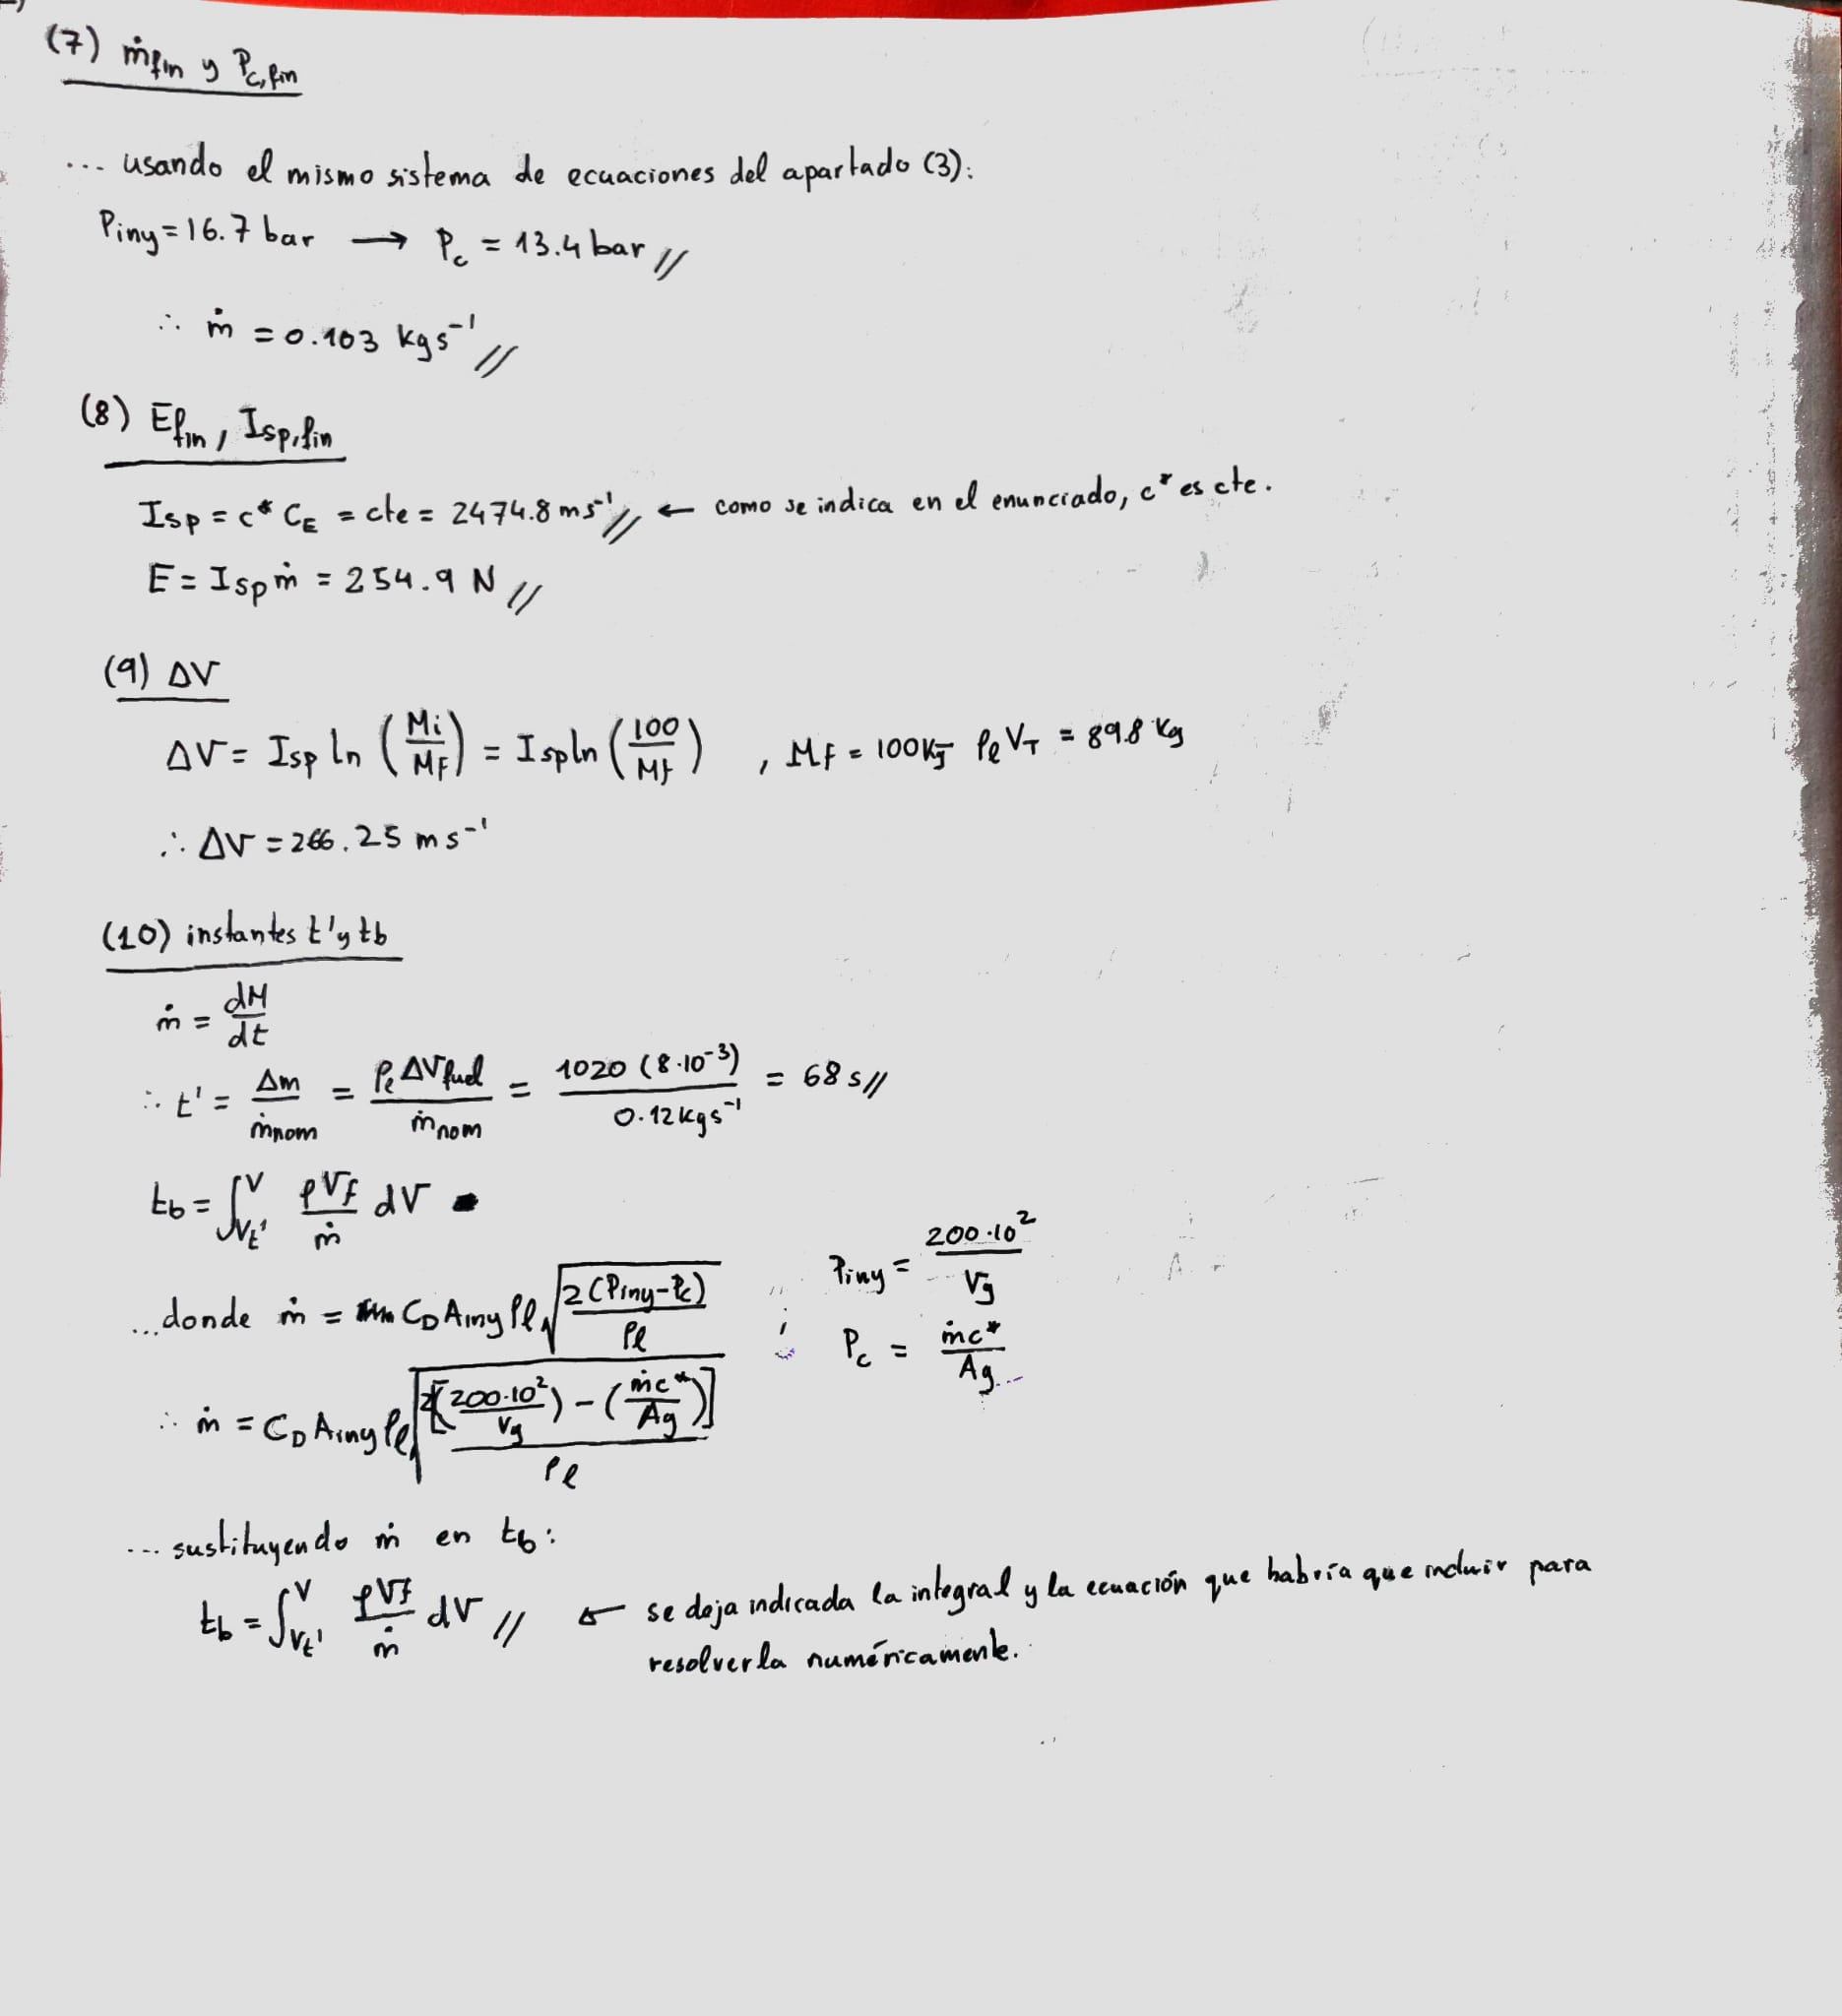 (7) ṁfin y Pc,fin
... usando el mismo sistema de ecuaciones del apartado (3):
Piny = 16.7 bar → Pc = 13.4 bar //
∴ ṁ = 0.103 kg s⁻¹ //
(8) Efin, Isp,fin
Isp = c* CE = cte = 2474.8 ms⁻¹ // ← como se indica en el enunciado, c* es cte.
E = Isp ṁ = 254.9 N //
(9) ΔV
ΔV = Isp ln (Mi/MF) = Isp ln (100/Mf) , Mf = 100kg - ρl VT = 89.8 kg
∴ ΔV = 266.25 ms⁻¹
(10) instantes t' y tb
ṁ = dM/dt
∴ t' = Δm/ṁnom = ρl ΔVfuel/ṁnom = 1020 (8·10⁻³)/0.12 kgs⁻¹ = 68 s //
tb = ∫Vt'^V ρVf/ṁ dV
...donde ṁ = CD Ainy ρl √(2(Piny-Pc)/ρl) ; Piny = 200·10²/Vg
Pc = ṁc*/Ag
∴ ṁ = CD Ainy ρl √(2[(200·10²/Vg) - (ṁc*/Ag)]/ρl)
... sustituyendo ṁ en tb:
tb = ∫Vt'^V ρVf/ṁ dV // ← se deja indicada la integral y la ecuación que habría que incluir para
resolverla numéricamente.